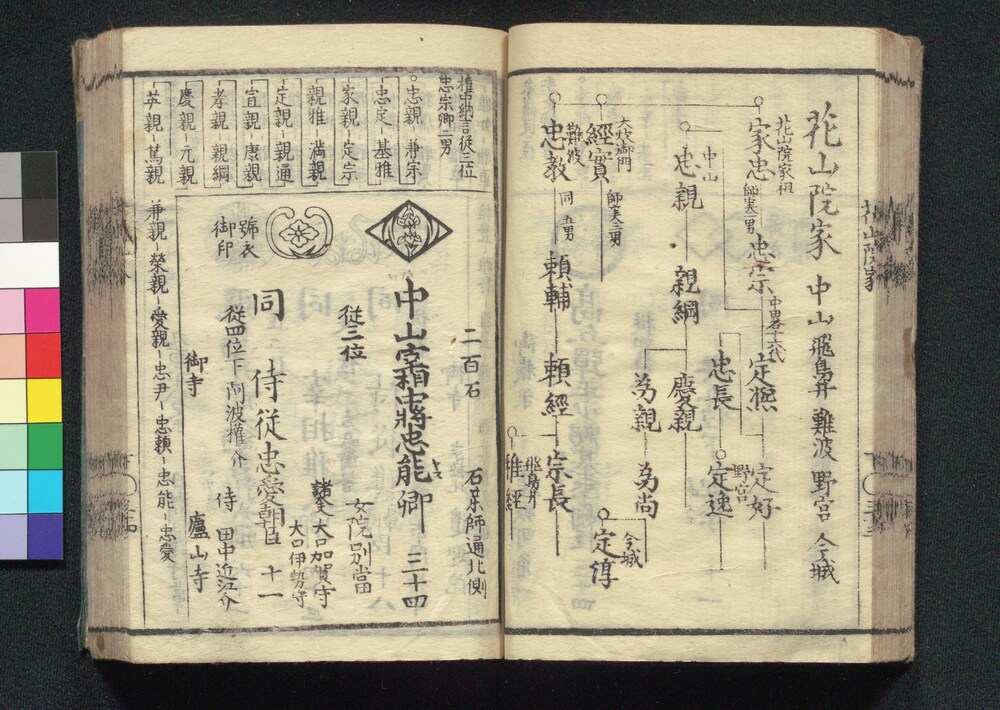 花山院家
花山院家 中山 飛鳥井 難波 野宮 今城
花山院家祖
家忠
師実二男
忠宗
中山
忠親
親綱
慶親
為親
為尚
定熈
定好
忠長
野宮
定逸
今城
定淳
大炊御門
經實
師実三男
難波
忠教
同 五男
頼輔
頼經
宗長
飛鳥井
雅經
権中納言従三位
忠宗卿二男
忠親 兼宗
忠定 基雅
家親 定宗
親雅 満親
定親 親通
宣親 康親
孝親 親綱
慶親 元親
英親 篤親
兼親 榮親 愛親 忠尹 忠頼 忠能 忠愛
二百石
石薬師通北側
中山宰相中將忠能卿 三十四
従三位
女院別當
諸大夫
大口加賀守
大口伊勢守
同 侍従忠愛朝臣 十一
従四位下阿波権介
侍 田中近江介
號衣
御印
御寺
廬山寺